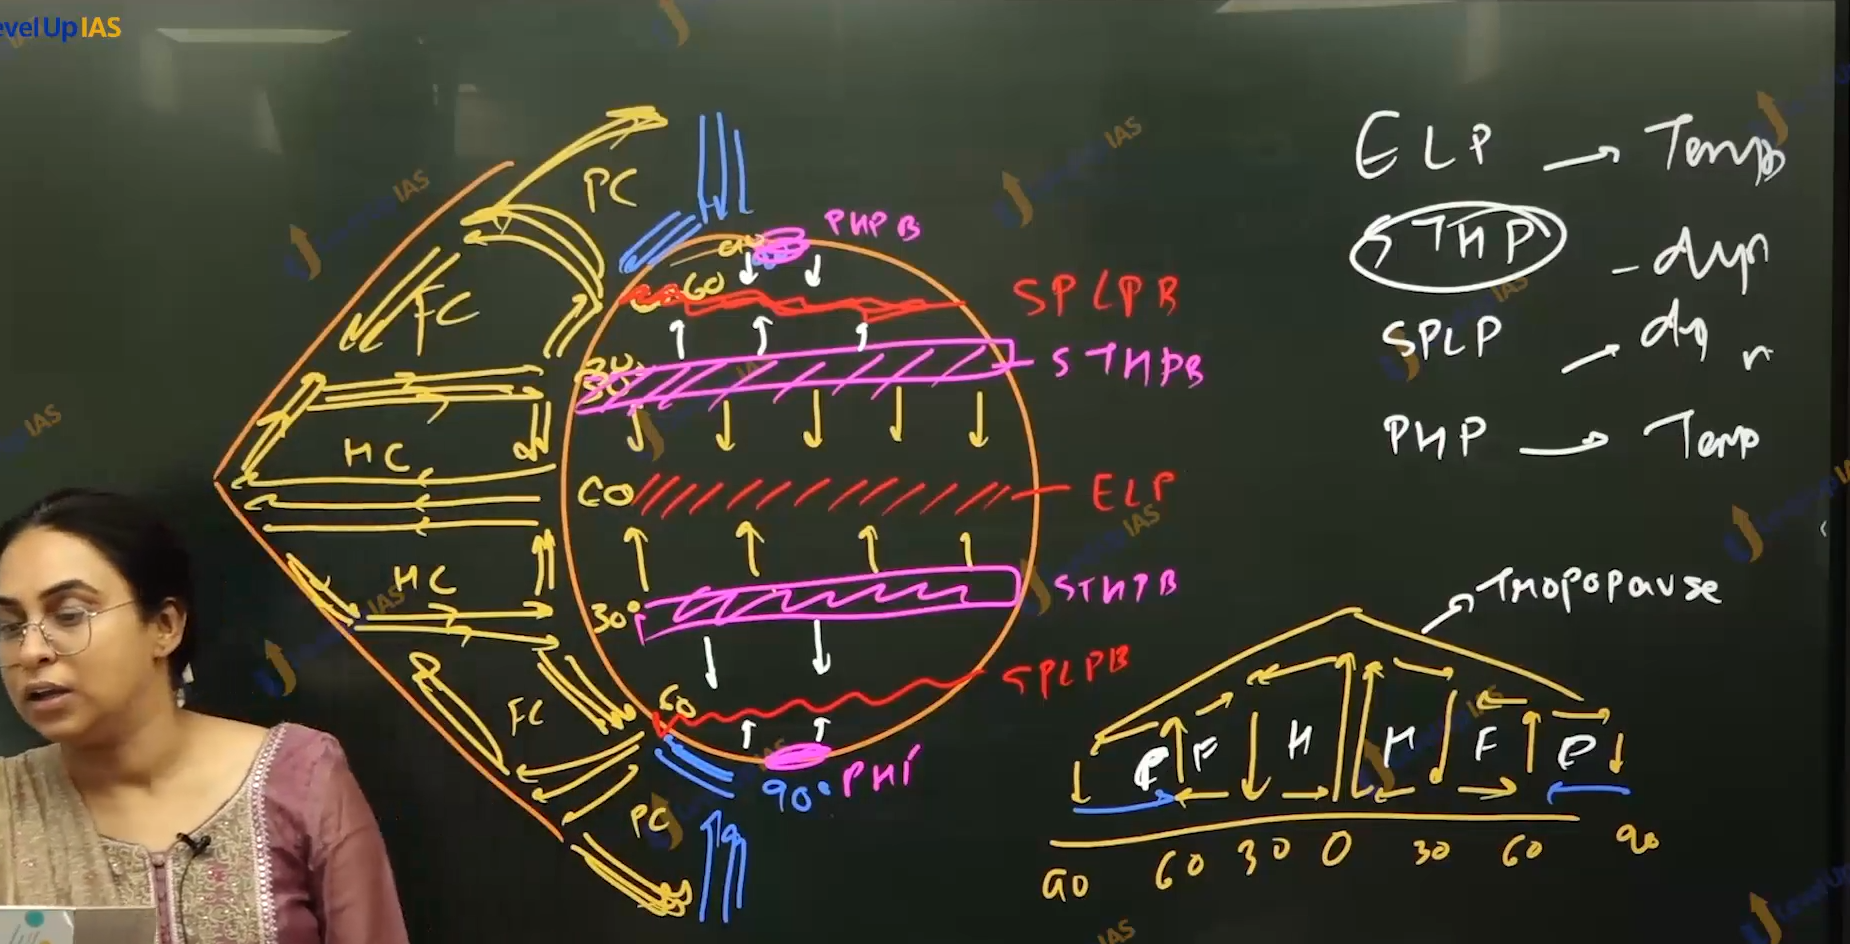 evelUp IAS
PC
FC
HC
HC
FC
PC
PHPB
60
SPLPB
STHPB
30
ELP
30°
STHPB
60
SPLPB
90°
PHP
ELP → Temp
STHP - dyn
SPLP → dyn
PHP → Temp
Tropopause
P F H H F P
90 60 30 0 30 60 90